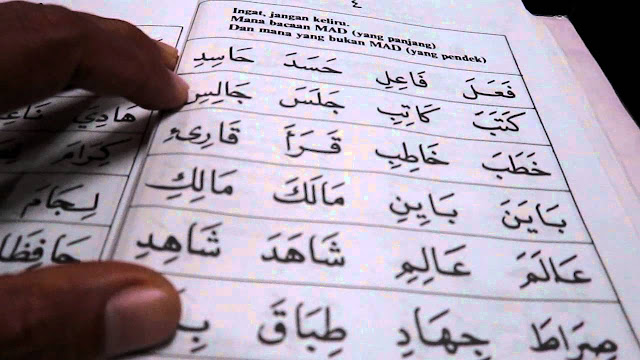 ٤
Ingat, jangan keliru.
Mana bacaan MAD (yang panjang)
Dan mana yang bukan MAD (yang pendek)
فَعَلَ فَاعِلِ حَسَدَ حَاسِدِ
كَتَبَ كَاتِبِ جَلَسَ جَالِسِ
خَطَبَ خَاطِبِ قَرَأَ قَارِئِ
بَايَنَ بَايِنِ مَالَكَ مَالِكِ
عَالَمَ عَالِمِ شَاهَدَ شَاهِدِ
صِرَاطَ جِهَادِ طِبَاقَ
هَادِيَ
كِرَامَ
لِجَامَ
حَافِظَا